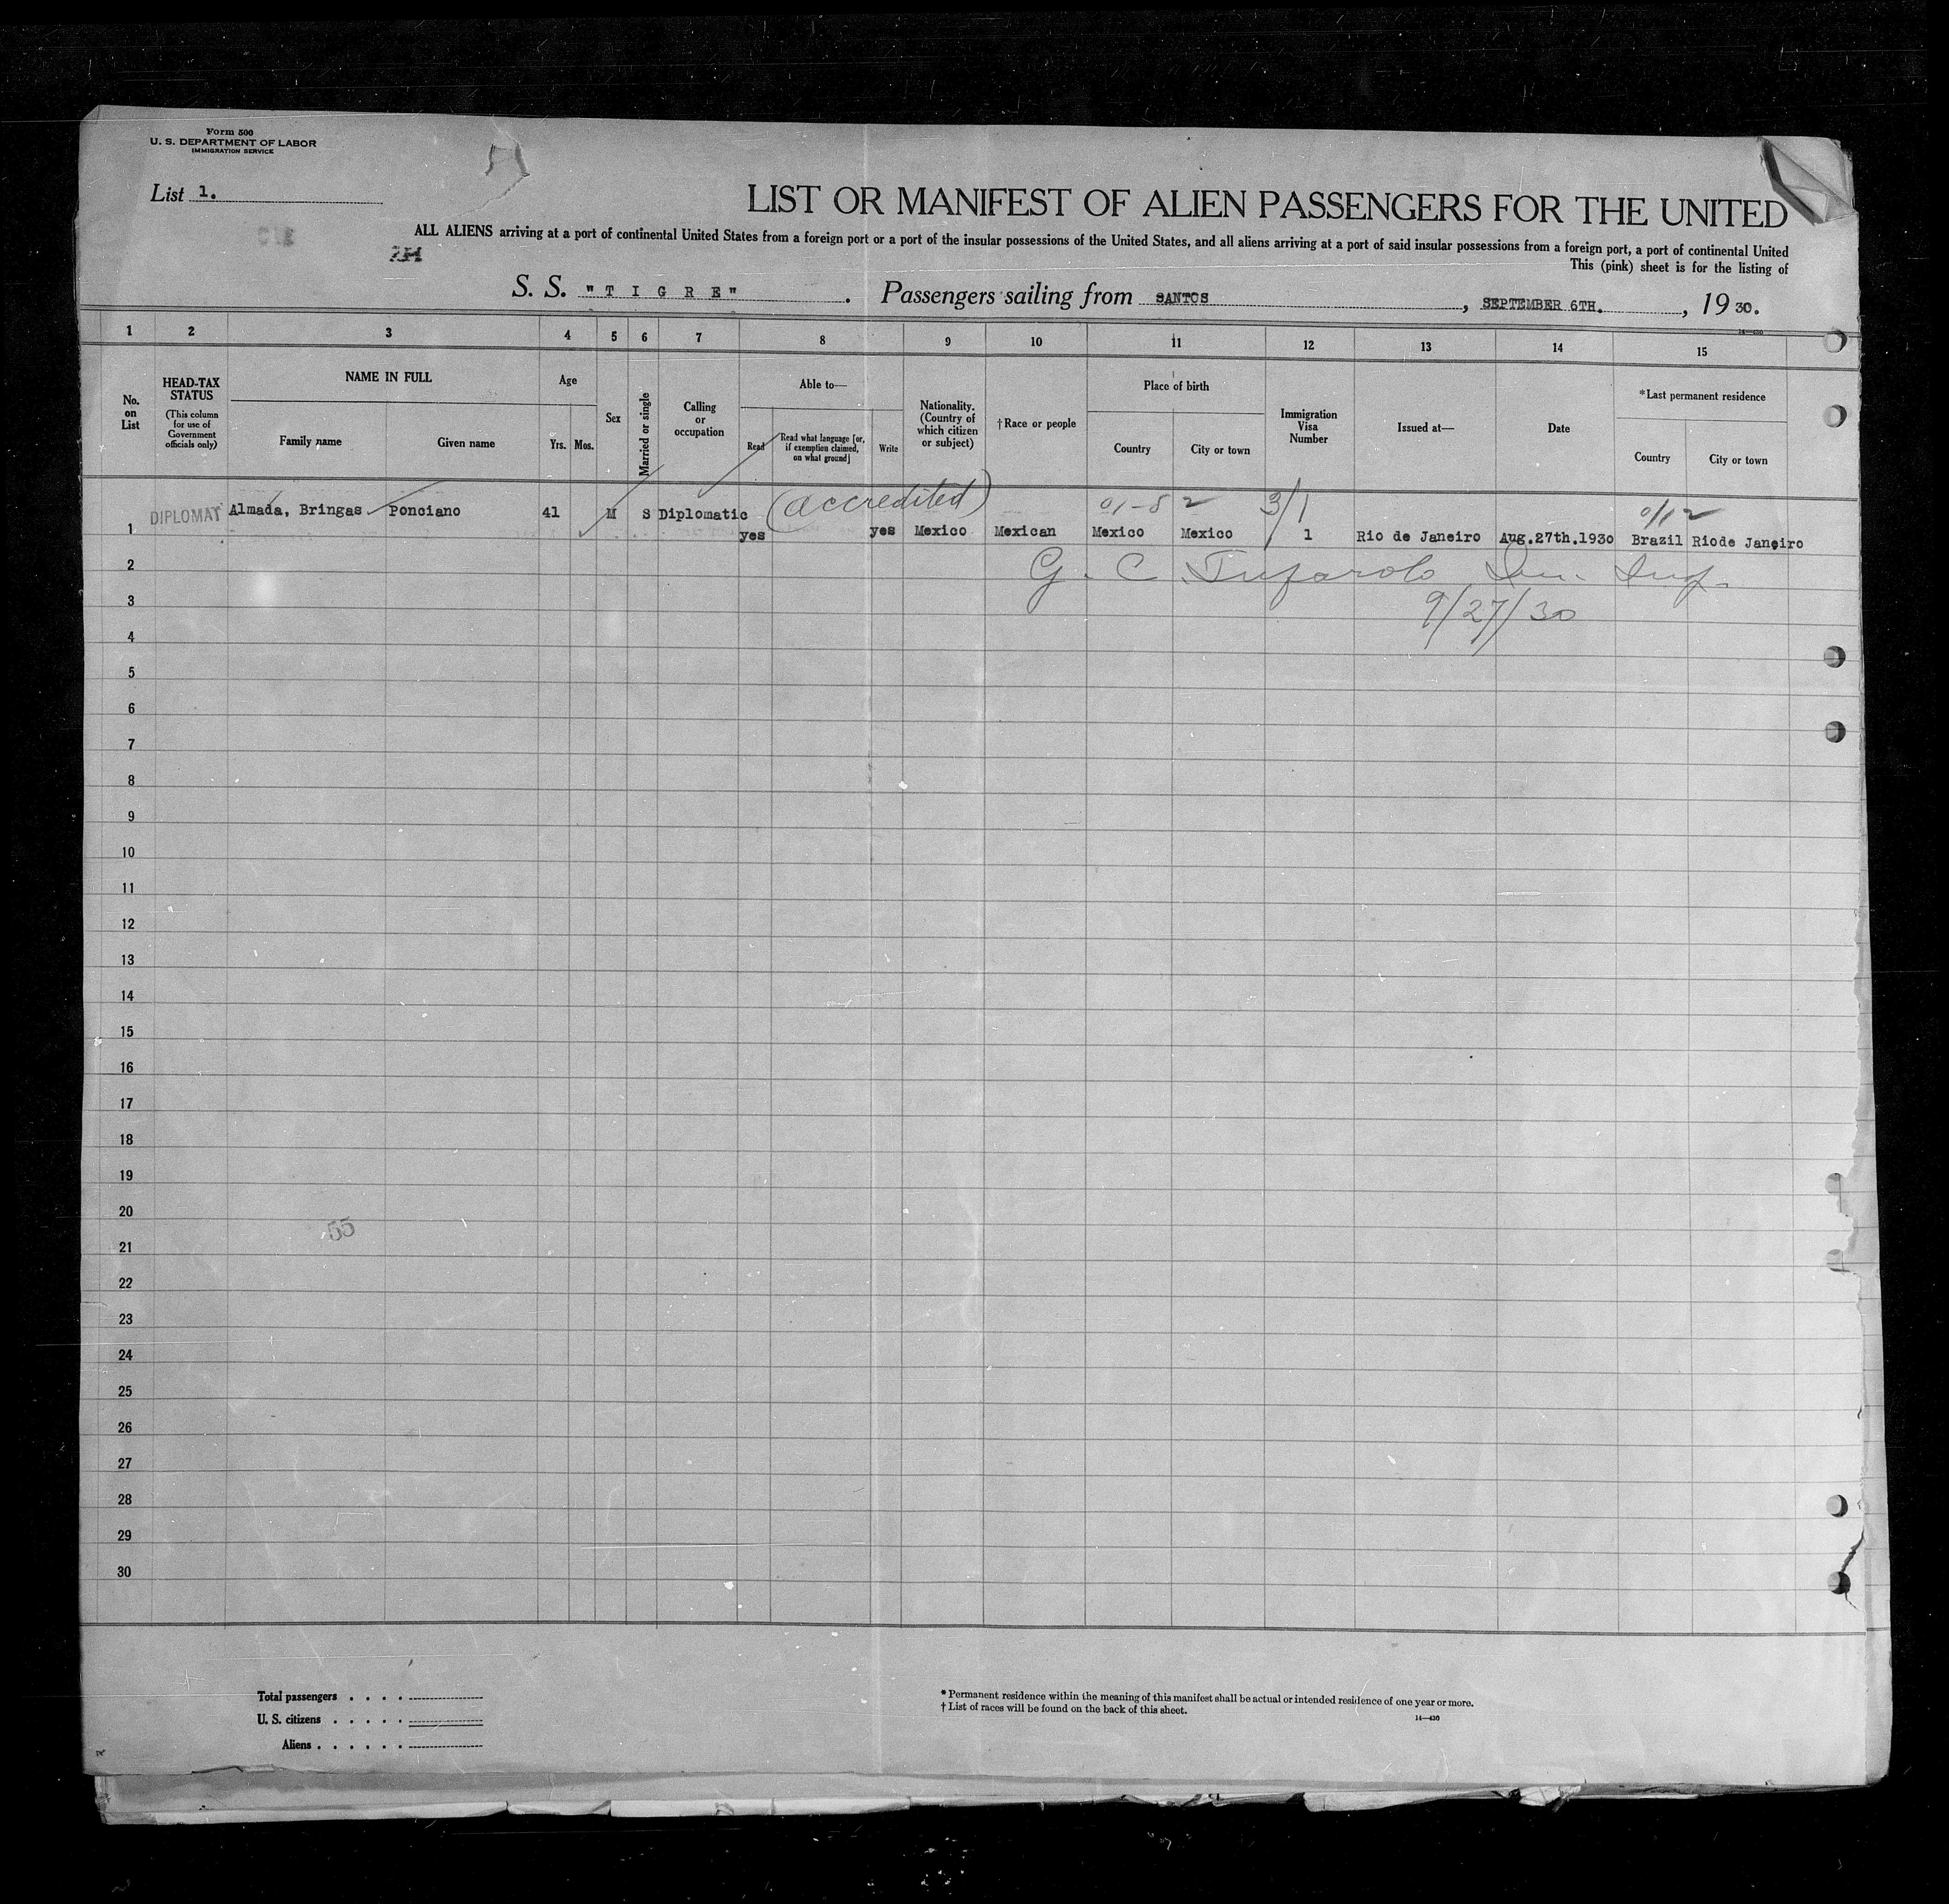 Form 500
U. S. DEPARTMENT OF LABOR
IMMIGRATION SERVICE
List 1.
LIST OR MANIFEST OF ALIEN PASSENGERS FOR THE UNITED
ALL ALIENS arriving at a port of continental United States from a foreign port or a port of the insular possessions of the United States, and all aliens arriving at a port of said insular possessions from a foreign port, a port of continental United
This (pink) sheet is for the listing of
S. S. "TIGRE". Passengers sailing from SANTOS, SEPTEMBER 6TH., 1930.
14—430
1 2 3 4 5 6 7 8 9 10 11 12 13 14 15
No. on List
HEAD-TAX STATUS
(This column for use of Government officials only)
NAME IN FULL
Family name Given name
Age
Yrs. Mos.
Sex
Married or single
Calling or occupation
Able to—
Read Read what language [or, if exemption claimed, on what ground] Write
Nationality. (Country of which citizen or subject)
†Race or people
Place of birth
Country City or town
Immigration Visa Number
Issued at—
Date
*Last permanent residence
Country City or town
(accredited) 01-82 3/1 0/12
1 DIPLOMAT Almada, Bringas Ponciano 41 M S Diplomatic yes yes Mexico Mexican Mexico Mexico 1 Rio de Janeiro Aug.27th.1930 Brazil Riode Janeiro
2 G. C. Imm. Insp.
3 9/27/30
4
5
6
7
8
9
10
11
12
13
14
15
16
17
18
19
20
55
21
22
23
24
25
26
27
28
29
30
Total passengers . . . .
U. S. citizens . . . . .
Aliens . . . . . .
* Permanent residence within the meaning of this manifest shall be actual or intended residence of one year or more.
† List of races will be found on the back of this sheet.
14—430